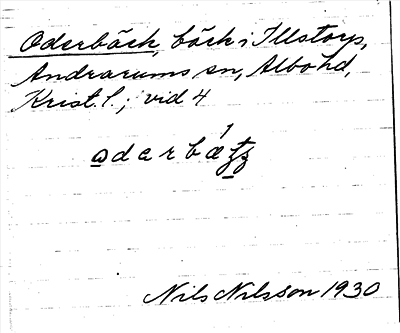 Oderbäck, bäck i Illstorps,
Andrarums sn, Albo hd,
Krist. l.; vid 4
Nils Nilsson 1930